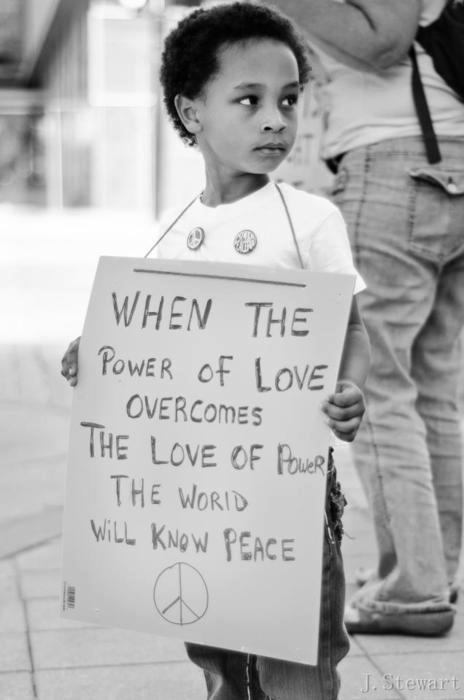 WHEN THE
POWER OF LOVE
OVERCOMES
THE LOVE OF POWER
THE WORLD
WILL KNOW PEACE
J. Stewart